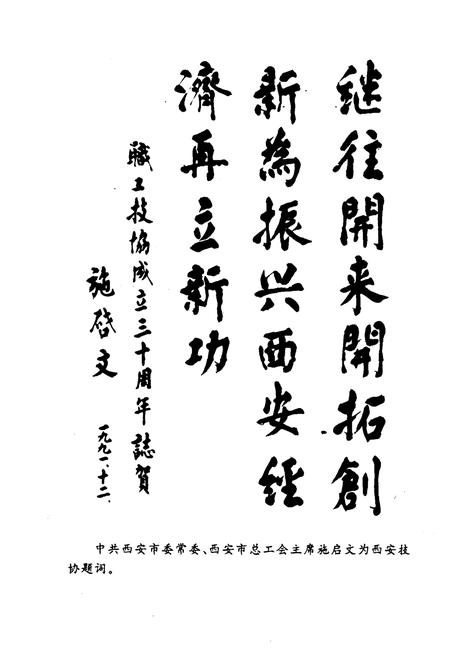 继往開来開拓創
新為振兴西安經
濟再立新功
職工技協成立三十周年誌賀
施啓文
一九九一.十二.
中共西安市委常委、西安市总工会主席施启文为西安技
协题词。